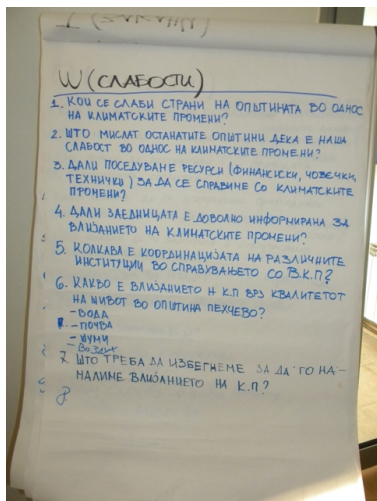 W (СЛАБОСТИ)
1. КОИ СЕ СЛАБИ СТРАНИ НА ОПШТИНАТА ВО ОДНОС
НА КЛИМАТСКИТЕ ПРОМЕНИ?
2. ШТО МИСЛАТ ОСТАНАТИТЕ ОПШТИНИ ДЕКА Е НАША
СЛАБОСТ ВО ОДНОС НА КЛИМАТСКИТЕ ПРОМЕНИ?
3. ДАЛИ ПОСЕДУВАМЕ РЕСУРСИ (ФИНАНСИСКИ, ЧОВЕЧКИ,
ТЕХНИЧКИ) ЗА ДА СЕ СПРАВИМЕ СО КЛИМАТСКИТЕ
ПРОМЕНИ?
4. ДАЛИ ЗАЕДНИЦАТА Е ДОВОЛНО ИНФОРМИРАНА ЗА
ВЛИЈАНИЕТО НА КЛИМАТСКИТЕ ПРОМЕНИ?
5. КОЛКАВА Е КООРДИНАЦИЈАТА НА РАЗЛИЧНИТЕ
ИНСТИТУЦИИ ВО СПРАВУВАЊЕТО СО В.К.П?
6. КАКВО Е ВЛИЈАНИЕТО Н К.П ВРЗ КВАЛИТЕТОТ
НА ЖИВОТ ВО ОПШТИНА ПЕХЧЕВО?
- ВОДА
- ПОЧВА
- ШУМИ
- ВОЗДУХ
7. ШТО ТРЕБА ДА ИЗБЕГНЕМЕ ЗА ДА ГО НА-
МАЛИМЕ ВЛИЈАНИЕТО НА К.П?
8